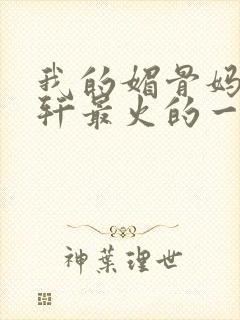 我的媚骨妈
轩最火的一
神葉理世